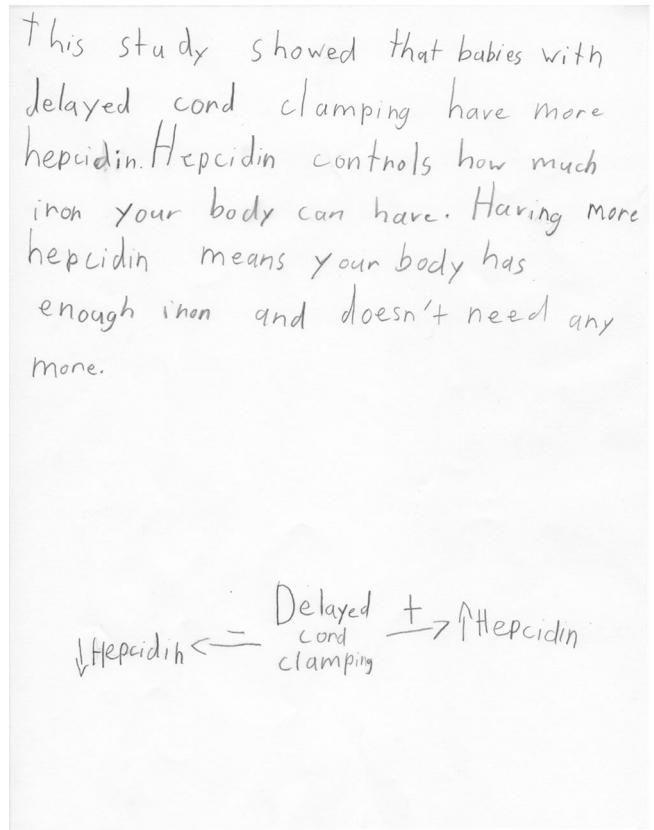 This study showed that babies with
delayed cord clamping have more
hepcidin. Hepcidin controls how much
iron your body can have. Having more
hepcidin means your body has
enough iron and doesn't need any
more.
Delayed + ↑Hepcidin
↓Hepcidin ← - cord →
clamping